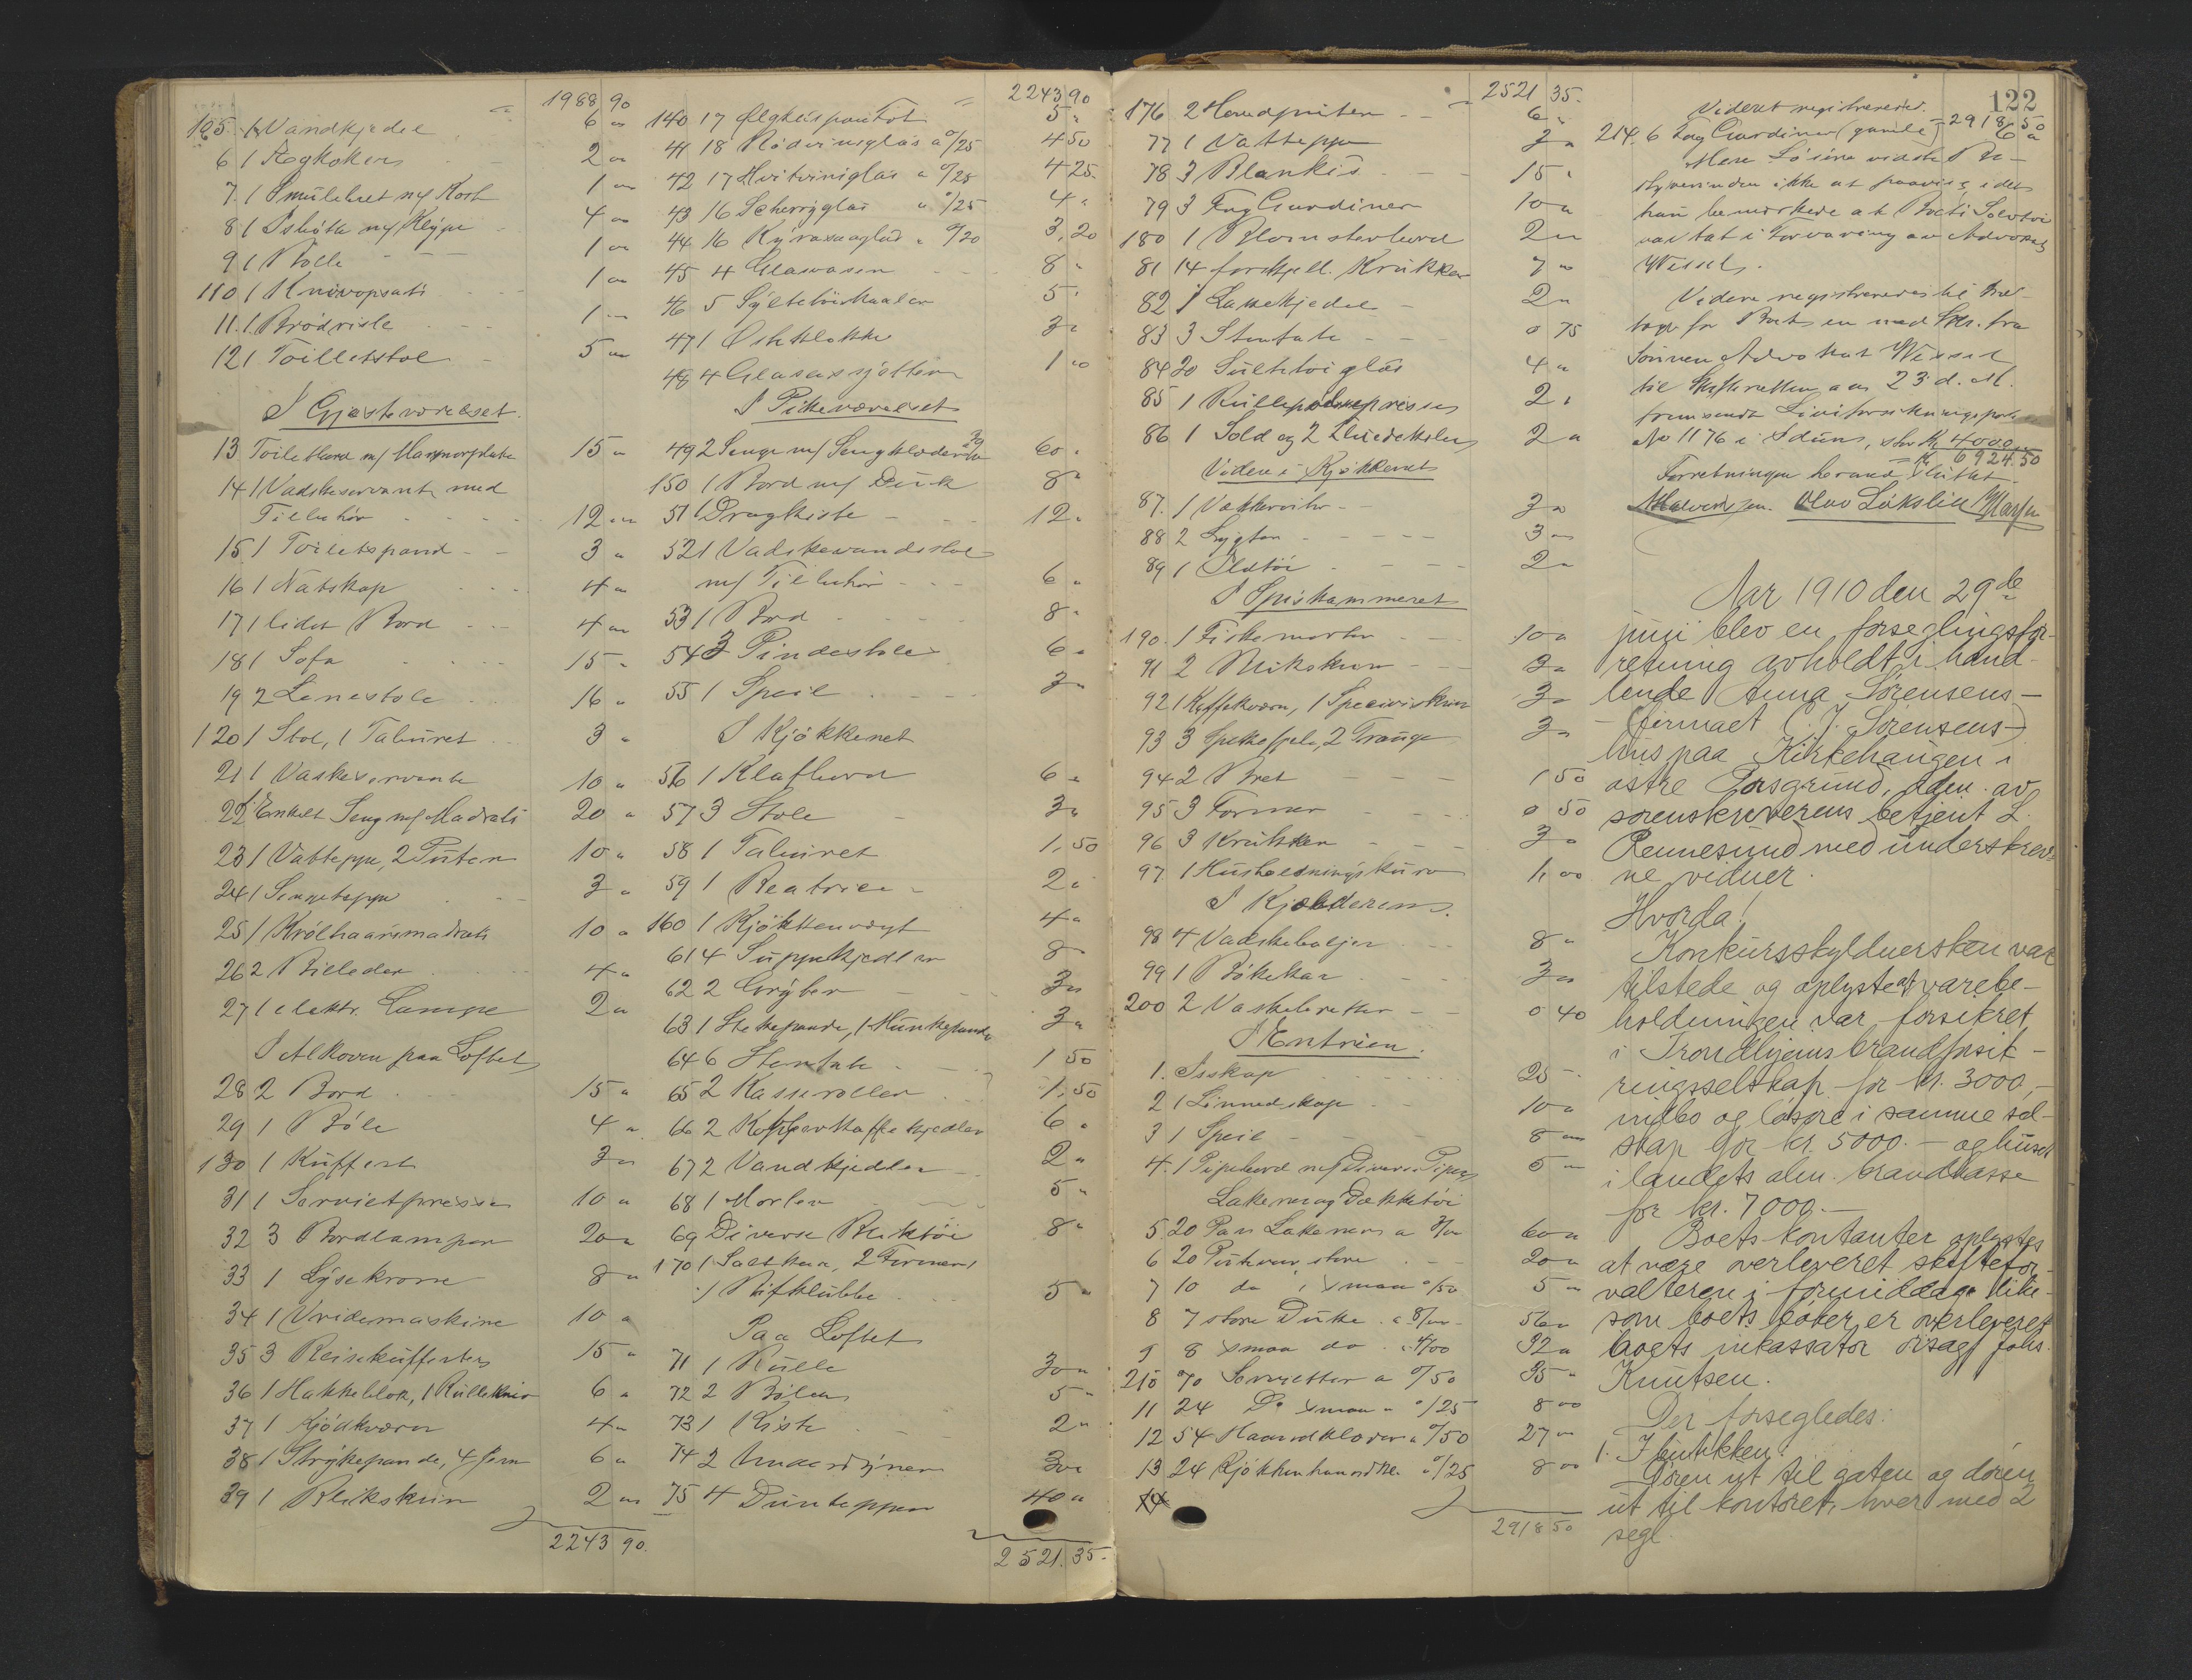 1988 90
105 1 Vandkjedel 6 "
6 1 Ægkoker 2 "
7 1 Smulebret m/ Kost 1 "
8 1 Isbøtte m/ Klype 4 "
9 1 Bolle 1 "
110 1 Knivopsats 1 "
11 1 Brødrist 1 "
12 1 Toilletstol 5 "
I Gjæsteværelset
13 Toiletbord m/ Marmorplate 15 "
14 1 Vadskeservant med
Tilbehør 12 "
15 1 Toiletspand 3 "
16 1 Natskap 4 "
17 1 lidet Bord 4 "
18 1 Sofa 15 "
19 2 Lenestole 16 "
120 1 Stol, 1 Taburet 3 "
21 1 Vaskeservante 10 "
22 1 Enkelt Seng m/ Madrats 20 "
23 1 Vatteppe, 2 Puter 10 "
24 1 Sengeteppe 3 "
25 1 Krølhaarsmadrats 10 "
26 2 Billeder 4 "
27 1 elektr. Lampe 2 "
I Alkoven paa Loftet
28 2 Bord 15 "
29 1 Bøle 4 "
130 1 Kuffert 3 "
31 1 Servietpresse 10 "
32 3 Bordlamper 20 "
33 1 Lysekrone 8 "
34 1 Vridemaskine 10 "
35 3 Reisekufferter 15 "
36 1 Hakkeblok, 1 Rullekniv 6 "
37 1 Kjødkværn 4 "
38 1 Strykepande, 4 Jern 6 "
39 1 Blikskrin 2 "
2243 90.
2243 90
140 17 Ølglas 5 "
41 18 Rødvinsglas a 0/25 4 50
42 17 Hvitvinsglas a 0/25 4 25
43 16 Scherryglas a 0/25 4 "
44 16 a 0/20 3,20
45 4 Glasvaser 8 "
46 5 Syltetøiskaaler 5 "
47 1 Osteklokke 3 "
48 4 Glasassjetter 1 "
I Pikeværelset
49 2 Senge m/ Sengklæder 60 "
150 1 Bord m/ Duk 8 "
51 Dragkiste 12 "
52 1 Vadskevandsstol
m/ Tilbehør 6 "
53 1 Bord 8 "
54 3 Pindestole 6 "
55 1 Speil 3 "
I Kjøkkenet
56 1 Klafbord 6 "
57 3 Stole 3 "
58 1 Taburet 1,50
59 1 Beatrice 2 "
160 1 Kjøkkenvægt 4 "
61 4 Suppekjedler 8 "
62 2 Gryter 3 "
63 1 Stekepande, 1 Munkepande 3 "
64 6 Stentøi 1 50
65 2 Kasseroller 1,50
66 2 Kobberkaffekjedler 6 "
67 2 Vandkjedler 2 "
68 1 Morter 5 "
69 Diverse Bliktøi 8 "
170 1 Saltkar, 2 Former,
1 Bifklubbe 5 "
Paa Loftet
71 1 Rulle 30 "
72 2 Bøler 5 "
73 1 Kiste 2 "
74 2 Underdyner 30 "
75 4 Dunteppen 40 "
2521.35
2521 35.
176 2 Hovedputer 6 "
77 1 Vatteppe 3 "
78 3 Blankis 15 "
79 3 Fag Gardiner 10 "
180 1 Blomsterbord 2 "
81 14 forskjell. Krukker 7 "
82 1 Laksekjedel 2 "
83 3 Stenfate 0 75
84 20 Sylteglas 4 "
85 1 Rullepølsepresse 2 "
86 1 Sold og 2 2 "
Videre i Kjøkkenet
87. 1 Vækkerur 3 "
88 2 Lygter 3 "
89 1 Ildtøi 2 "
I Spiskammeret
190. 1 Fiskemorter 10 "
91 2 Blikskrin 3 "
92 1 Kaffekværn, 1 Speceriskrin 3 "
93 3 Spekefjele, 2 Trauge 3 "
94 2 Bret 1 50
95 3 Former 0 50
96 3 Krukker 3 "
97 1 Husholdningskurv 1,00
I Kjælderen
98 4 Vadskebaljer 8 "
99 1 Bøkekar 3 "
200 2 Vaskebretter 0 40
I Entreen.
1. Isskap 25 "
2 1 Linnedskap 10 "
3 1 Speil 8 "
4. 1 Pipebord m/ Diverse Piper 5 "
Lakener og Dækketøi
5 20 Par Lakener a 3/00 60 "
6 20 Putevar, store 20 "
7 10 do , smaa 0/50 5 "
8 7 store Duke a 8/00 56 "
9 8 smaa do a 4/00 32 "
210 70 Servietter a 0/50 35 "
11 24 Do smaa a 0/25 8 00
12 54 Haandklæder a 0/50 27 "
13 24 Kjøkkenhaandkl. a 0/25 8 00
14
2918 50
122
Videre registreredes
2918 50
214. 6 Fag Gardiner (gamle) 6 "
Mere Løsøre vidste Be-
styrerinden ikke at paavise, idet
hun bemerkede at Boets Sølvtøi
var tat i Forvaring av Advokat
Wessel.
Videre registreredes til Ind-
tægt for Boet en med Skr. fra
Sønnen Advokat Wessel
til Skifteretten av 23 d. M.
fremsendt Livsforsikringspolise
No 1176 i Idun, stor Kr 4000
Kr. 6924.50
Forretningen herand sluttet.
Halvorsen. Olav Løkslid
Aar 1910 den 29de
juni blev en forseglingsfor-
retning avholdt i hand-
lende Anna Sørensens -
- (firmaet C. J. Sørensens -)
hus paa Kirkehaugen i
østre Porsgrund, den av
sorenskriverens betjent L.
Rennesund med underskrev-
ne vidner.
Hvorda!
Konkursskyldnersken var
tilstede og oplyste at varebe-
holdningen var forsikret
i Trondhjems brandforsik-
ringsselskap for kr. 3000,-
indbo og løsøre i samme sel-
skap for kr. 5000.- og huset
i landets alm. brandkasse
for kr. 7000.-
Boets kontanter oplystes
at være overleveret skiftefor-
valteren i formiddag like-
som boets bøker er overleveret
boets inkassator Johs.
Knutsen.
Der forsegledes:
1. I butikken:
Døren ut til gaten og døren
ut til kontoret, hver med 2
segl.